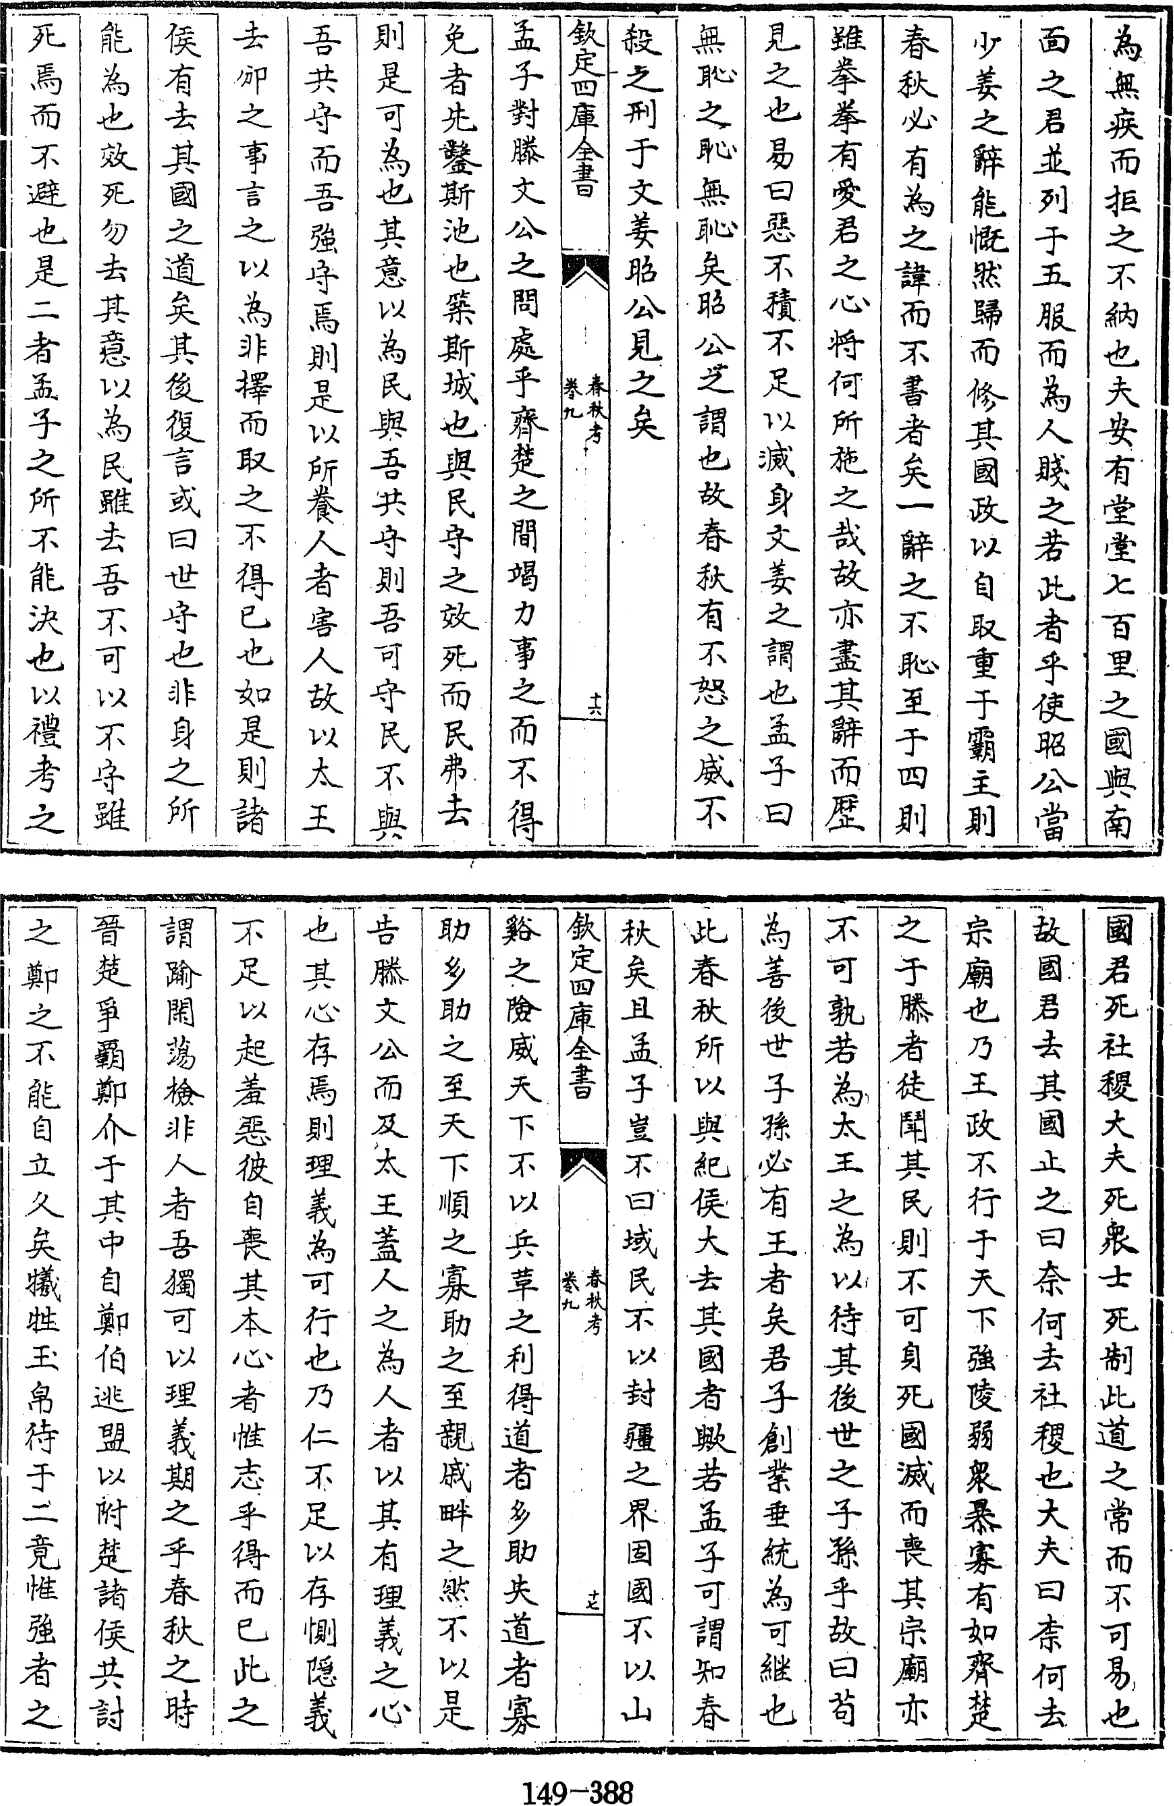 為無疾而拒之不納也夫安有堂堂七百里之國與南
面之君並列于五服而為人賤之若此者乎使昭公當
少姜之辭能慨然歸而修其國政以自取重于霸主則
春秋必有為之諱而不書者矣一辭之不恥至于四則
雖拳拳有愛君之心將何所施之哉故亦盡其辭而歴
見之也易曰惡不積不足以滅身文姜之謂也孟子曰
無恥之恥無恥矣昭公之謂也故春秋有不怒之威不
殺之刑于文姜昭公見之矣
欽定四庫全書
春秋考
卷九
十六
孟子對滕文公之問處乎齊楚之間竭力事之而不得
免者先鑿斯池也築斯城也與民守之效死而民弗去
則是可為也其意以為民與吾共守則吾可守民不與
吾共守而吾強守焉則是以所養人者害人故以太王
去邠之事言之以為非擇而取之不得已也如是則諸
侯有去其國之道矣其後復言或曰世守也非身之所
能為也效死勿去其意以為民雖去吾不可以不守雖
死焉而不避也是二者孟子之所不能決也以禮考之
國君死社稷大夫死衆士死制此道之常而不可易也
故國君去其國止之曰奈何去社稷也大夫曰柰何去
宗廟也乃王政不行于天下強陵弱衆暴寡有如齊楚
之于滕者徒鬭其民則不可身死國滅而喪其宗廟亦
不可孰若為太王之為以待其後世之子孫乎故曰茍
為善後世子孫必有王者矣君子創業垂統為可繼也
此春秋所以與紀侯大去其國者歟若孟子可謂知春
秋矣且孟子豈不曰域民不以封疆之界固國不以山
欽定四庫全書
春秋考
卷九
十七
谿之險威天下不以兵革之利得道者多助失道者寡
助多助之至天下順之寡助之至親戚畔之然不以是
告滕文公而及太王蓋人之為人者以其有理義之心
也其心存焉則理義為可行也乃仁不足以存惻隠義
不足以起羞惡彼自喪其本心者惟志乎得而已此之
謂踰閑蕩檢非人者吾獨可以理義期之乎春秋之時
晉楚爭霸鄭介于其中自鄭伯逃盟以附楚諸侯共討
之鄭之不能自立久矣犧牲玉帛待于二竟惟強者之
149-388